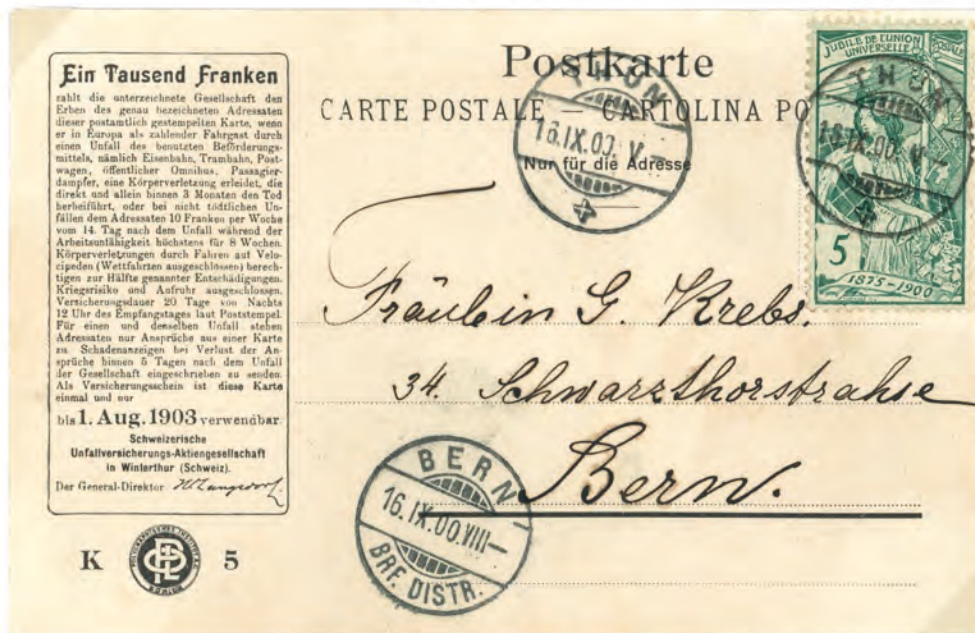 Postkarte
CARTE POSTALE — CARTOLINA PO
Nur für die Adresse
THUN
16.IX.00. V—
JUBILÉ DE L'UNION POSTALE
UNIVERSELLE
THUN
16.IX.00. V—
5
1875-1900
Ein Tausend Franken
zahlt die unterzeichnete Gesellschaft den
Erben des genau bezeichneten Adressaten
dieser postamtlich gestempelten Karte, wenn
er in Europa als zahlender Fahrgast durch
einen Unfall des benutzten Beförderungs-
mittels, nämlich Eisenbahn, Trambahn, Post-
wagen, öffentlicher Omnibus, Passagier-
dampfer, eine Körperverletzung erleidet, die
direkt und allein binnen 3 Monaten den Tod
herbeiführt, oder bei nicht tödtlichen Un-
fällen dem Adressaten 10 Franken per Woche
vom 14. Tag nach dem Unfall während der
Arbeitsunfähigkeit höchstens für 8 Wochen.
Körperverletzungen durch Fahren auf Velo-
cipeden (Wettfahrten ausgeschlossen) berech-
tigen zur Hälfte genannter Entschädigungen.
Kriegsrisiko und Aufruhr ausgeschlossen.
Versicherungsdauer 20 Tage von Nachts
12 Uhr des Empfangstages laut Poststempel.
Für einen und denselben Unfall stehen
Adressaten nur Ansprüche aus einer Karte
zu. Schadenanzeigen bei Verlust der An-
sprüche binnen 5 Tagen nach dem Unfall
der Gesellschaft eingeschrieben zu senden.
Als Versicherungsschein ist diese Karte
einmal und nur
bis 1. Aug. 1903 verwendbar.
Schweizerische
Unfallversicherungs-Aktiengesellschaft
in Winterthur (Schweiz).
Der General-Direktor
K 5
Fräulein G. Krebs.
34. Schwarzthorstrahse
Bern.
BERN
16.IX.00.VIII—
BRF. DISTR.